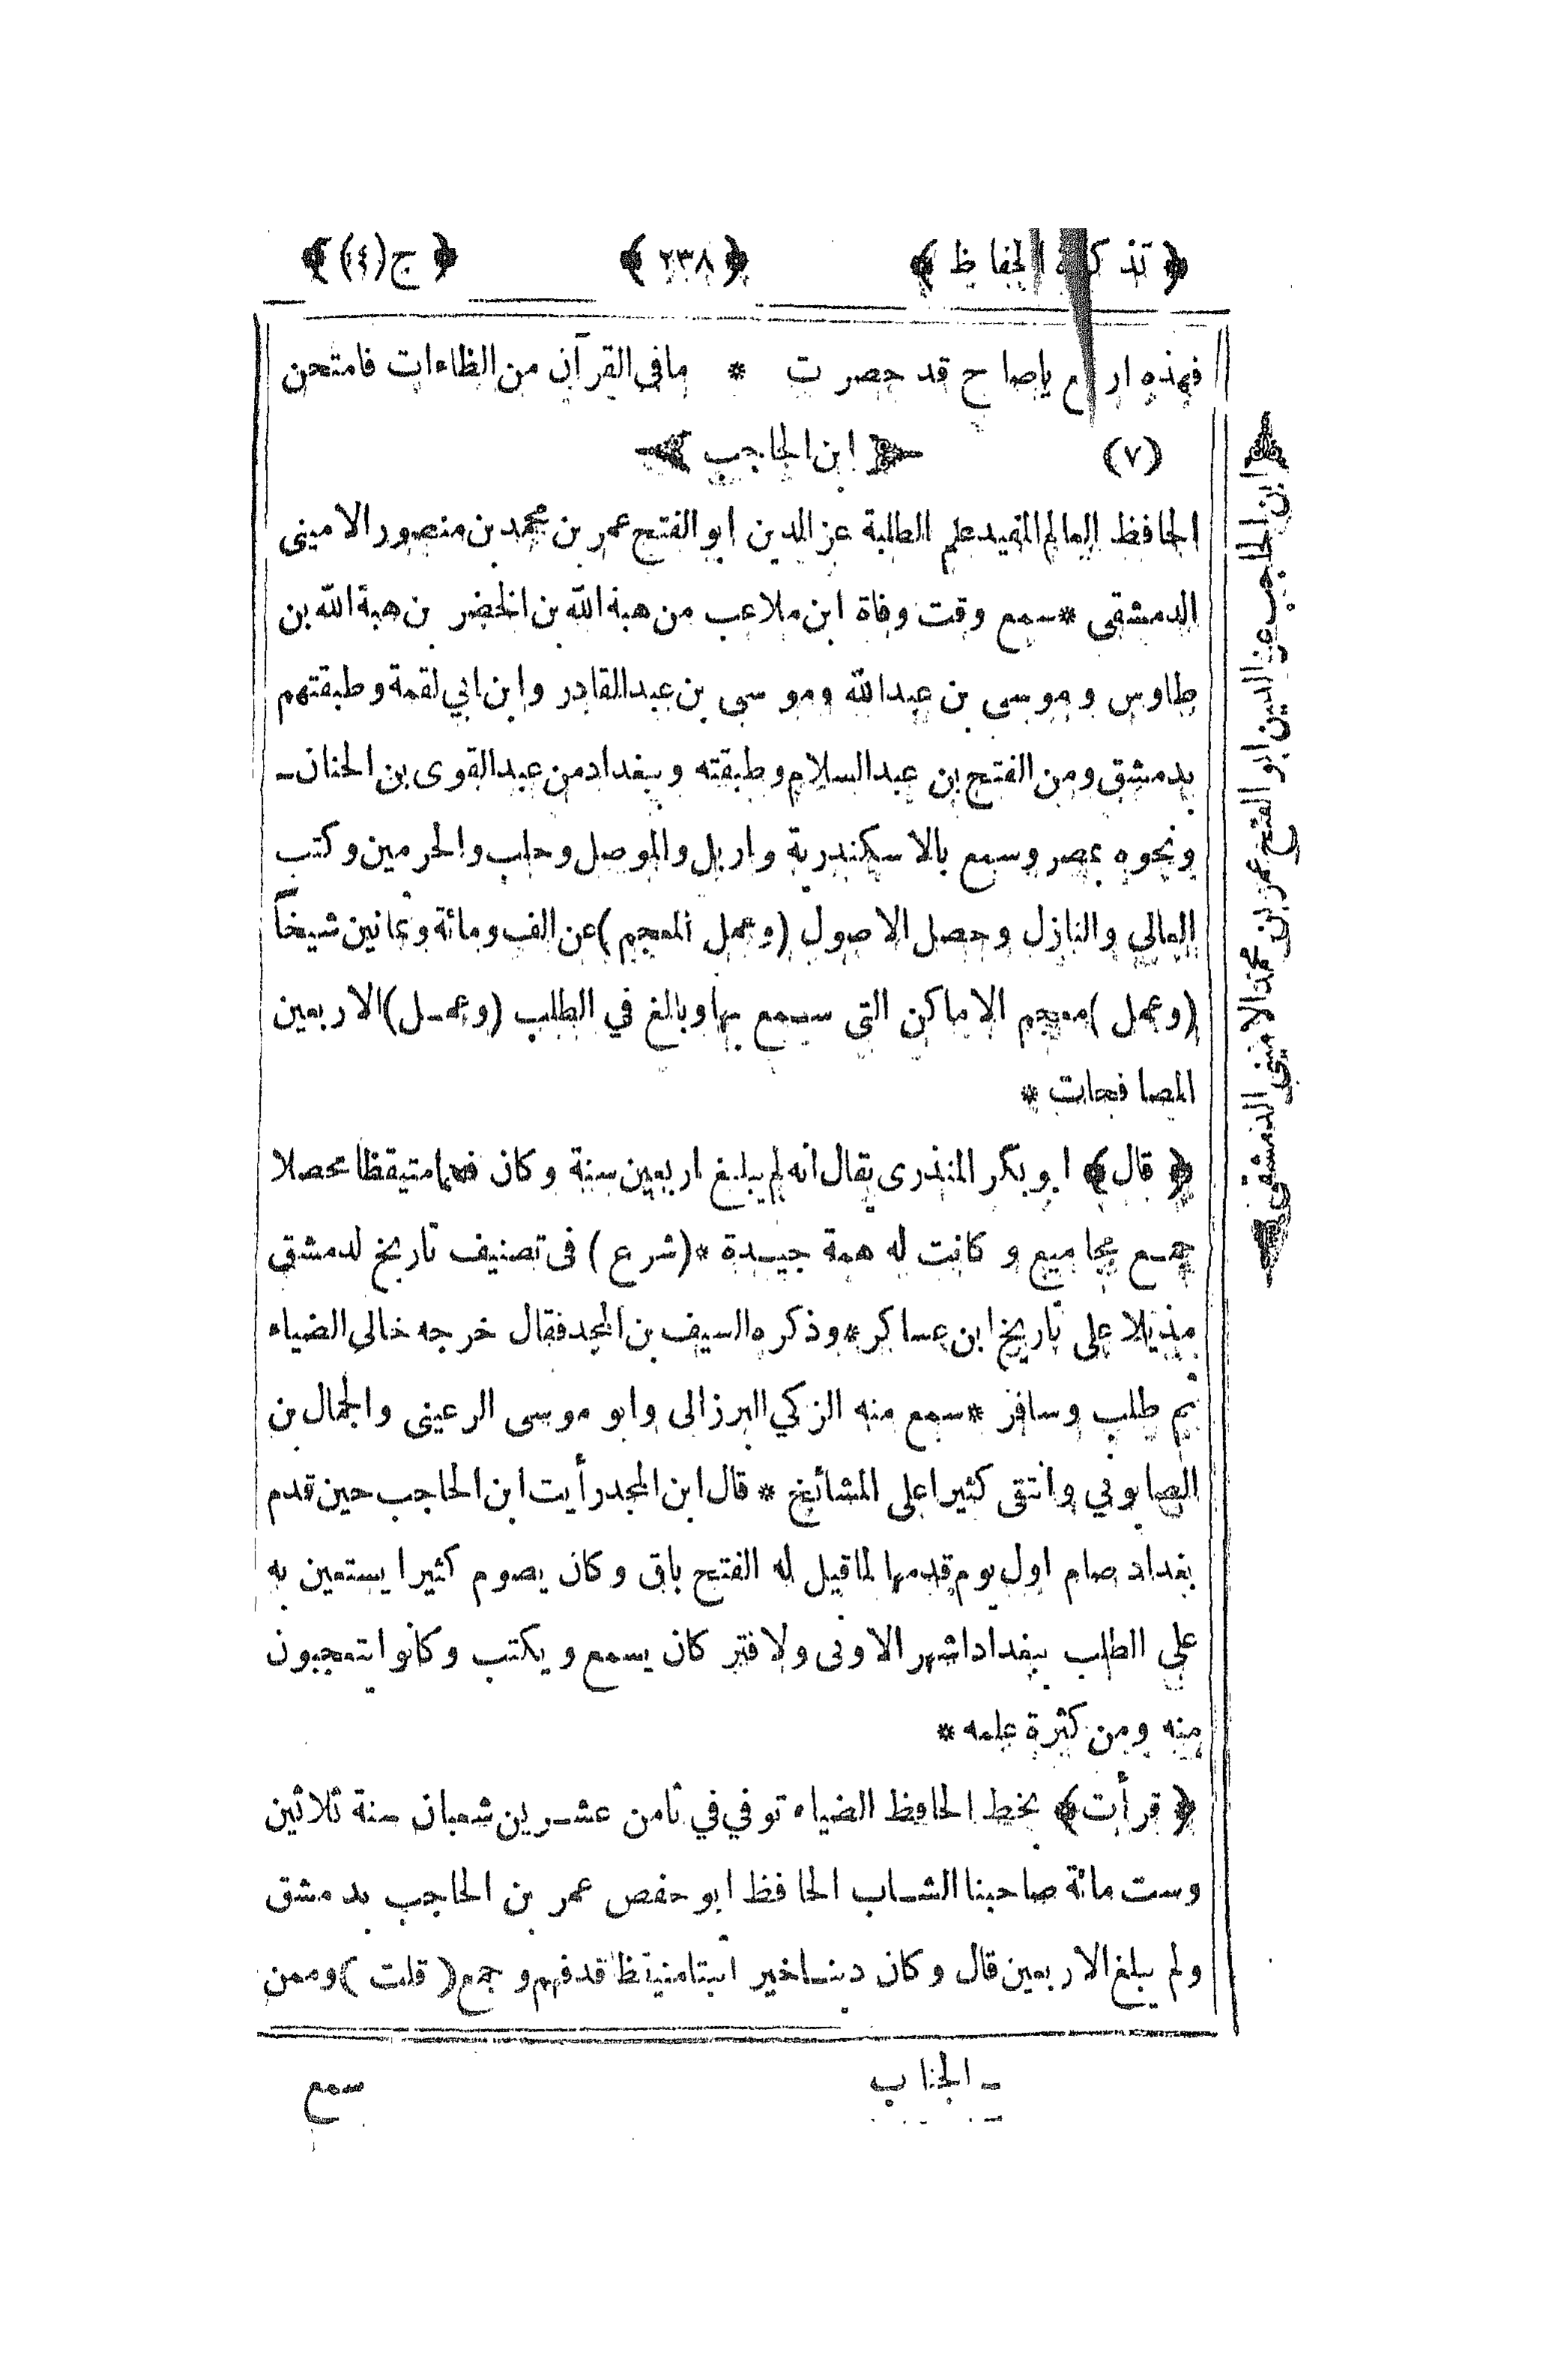 ﴿ تذكرة الحفاظ ﴾ ﴿ ٢٣٨ ﴾ ﴿ ج (٤) ﴾
فهذه اربع ياصاح قد حصرت * مافى القرآن من الظاءات فامتحن
(٧) ابن الحاجب
الحافظ العالم المفيد علم الطلبة عز الدين ابو الفتح عمر بن محمد بن منصور الامينى
الدمشقى * سمع وقت وفاة ابن ملاعب من هبة الله بن الخضر بن هبة الله بن
طاوس وموسى بن عبد الله وموسى بن عبد القادر وابن ابي لقمة وطبقتهم
بدمشق ومن الفتح بن عبد السلام وطبقته وببغداد من عبد القوى بن الحنان ـ
ونحوه بمصر وسمع بالاسكندرية واربل والموصل وحلب والحرمين وكتب
العالى والنازل وحصل الاصول (وعمل المعجم) عن الف ومائة وثمانين شيخاً
(وعمل) معجم الاماكن التى سمع بها وبالغ في الطلب (وعمل) الاربعين
المصافحات *
﴿ قال ﴾ ابو بكر المنذرى يقال انه لم يبلغ اربعين سنة وكان فهما متيقظا محصلا
جمع مجاميع وكانت له همة جيدة * (شرع) فى تصنيف تاريخ لدمشق
مذيلا على تاريخ ابن عساكر * وذكره السيف بن المجد فقال خرجه خالى الضياء
ثم طلب وسافر * سمع منه الزكي البرزالى وابو موسى الرعينى والجمال بن
الصابوني وانتقى كثيرا على المشائخ * قال ابن المجد رأيت ابن الحاجب حين قدم
بغداد صام اول يوم قدمها لما قيل له الفتح باق وكان يصوم كثيرا يستعين به
على الطلب ببغداد اشهر الاونى ولا فتر كان يسمع ويكتب وكانوا يتعجبون
منه ومن كثرة علمه *
﴿ قرأت ﴾ بخط الحافظ الضياء توفي في ثامن عشرين شعبان سنة ثلاثين
وست مائة صاحبنا الشاب الحافظ ابو حفص عمر بن الحاجب بدمشق
ولم يبلغ الاربعين قال وكان دينا خيرا ثبتا متيقظا قد فهم وجمع (قلت) وممن
ـ الجناب
سمع
ابن الحاجب عز الدين ابو الفتح عمر بن محمد الامينى الدمشقى